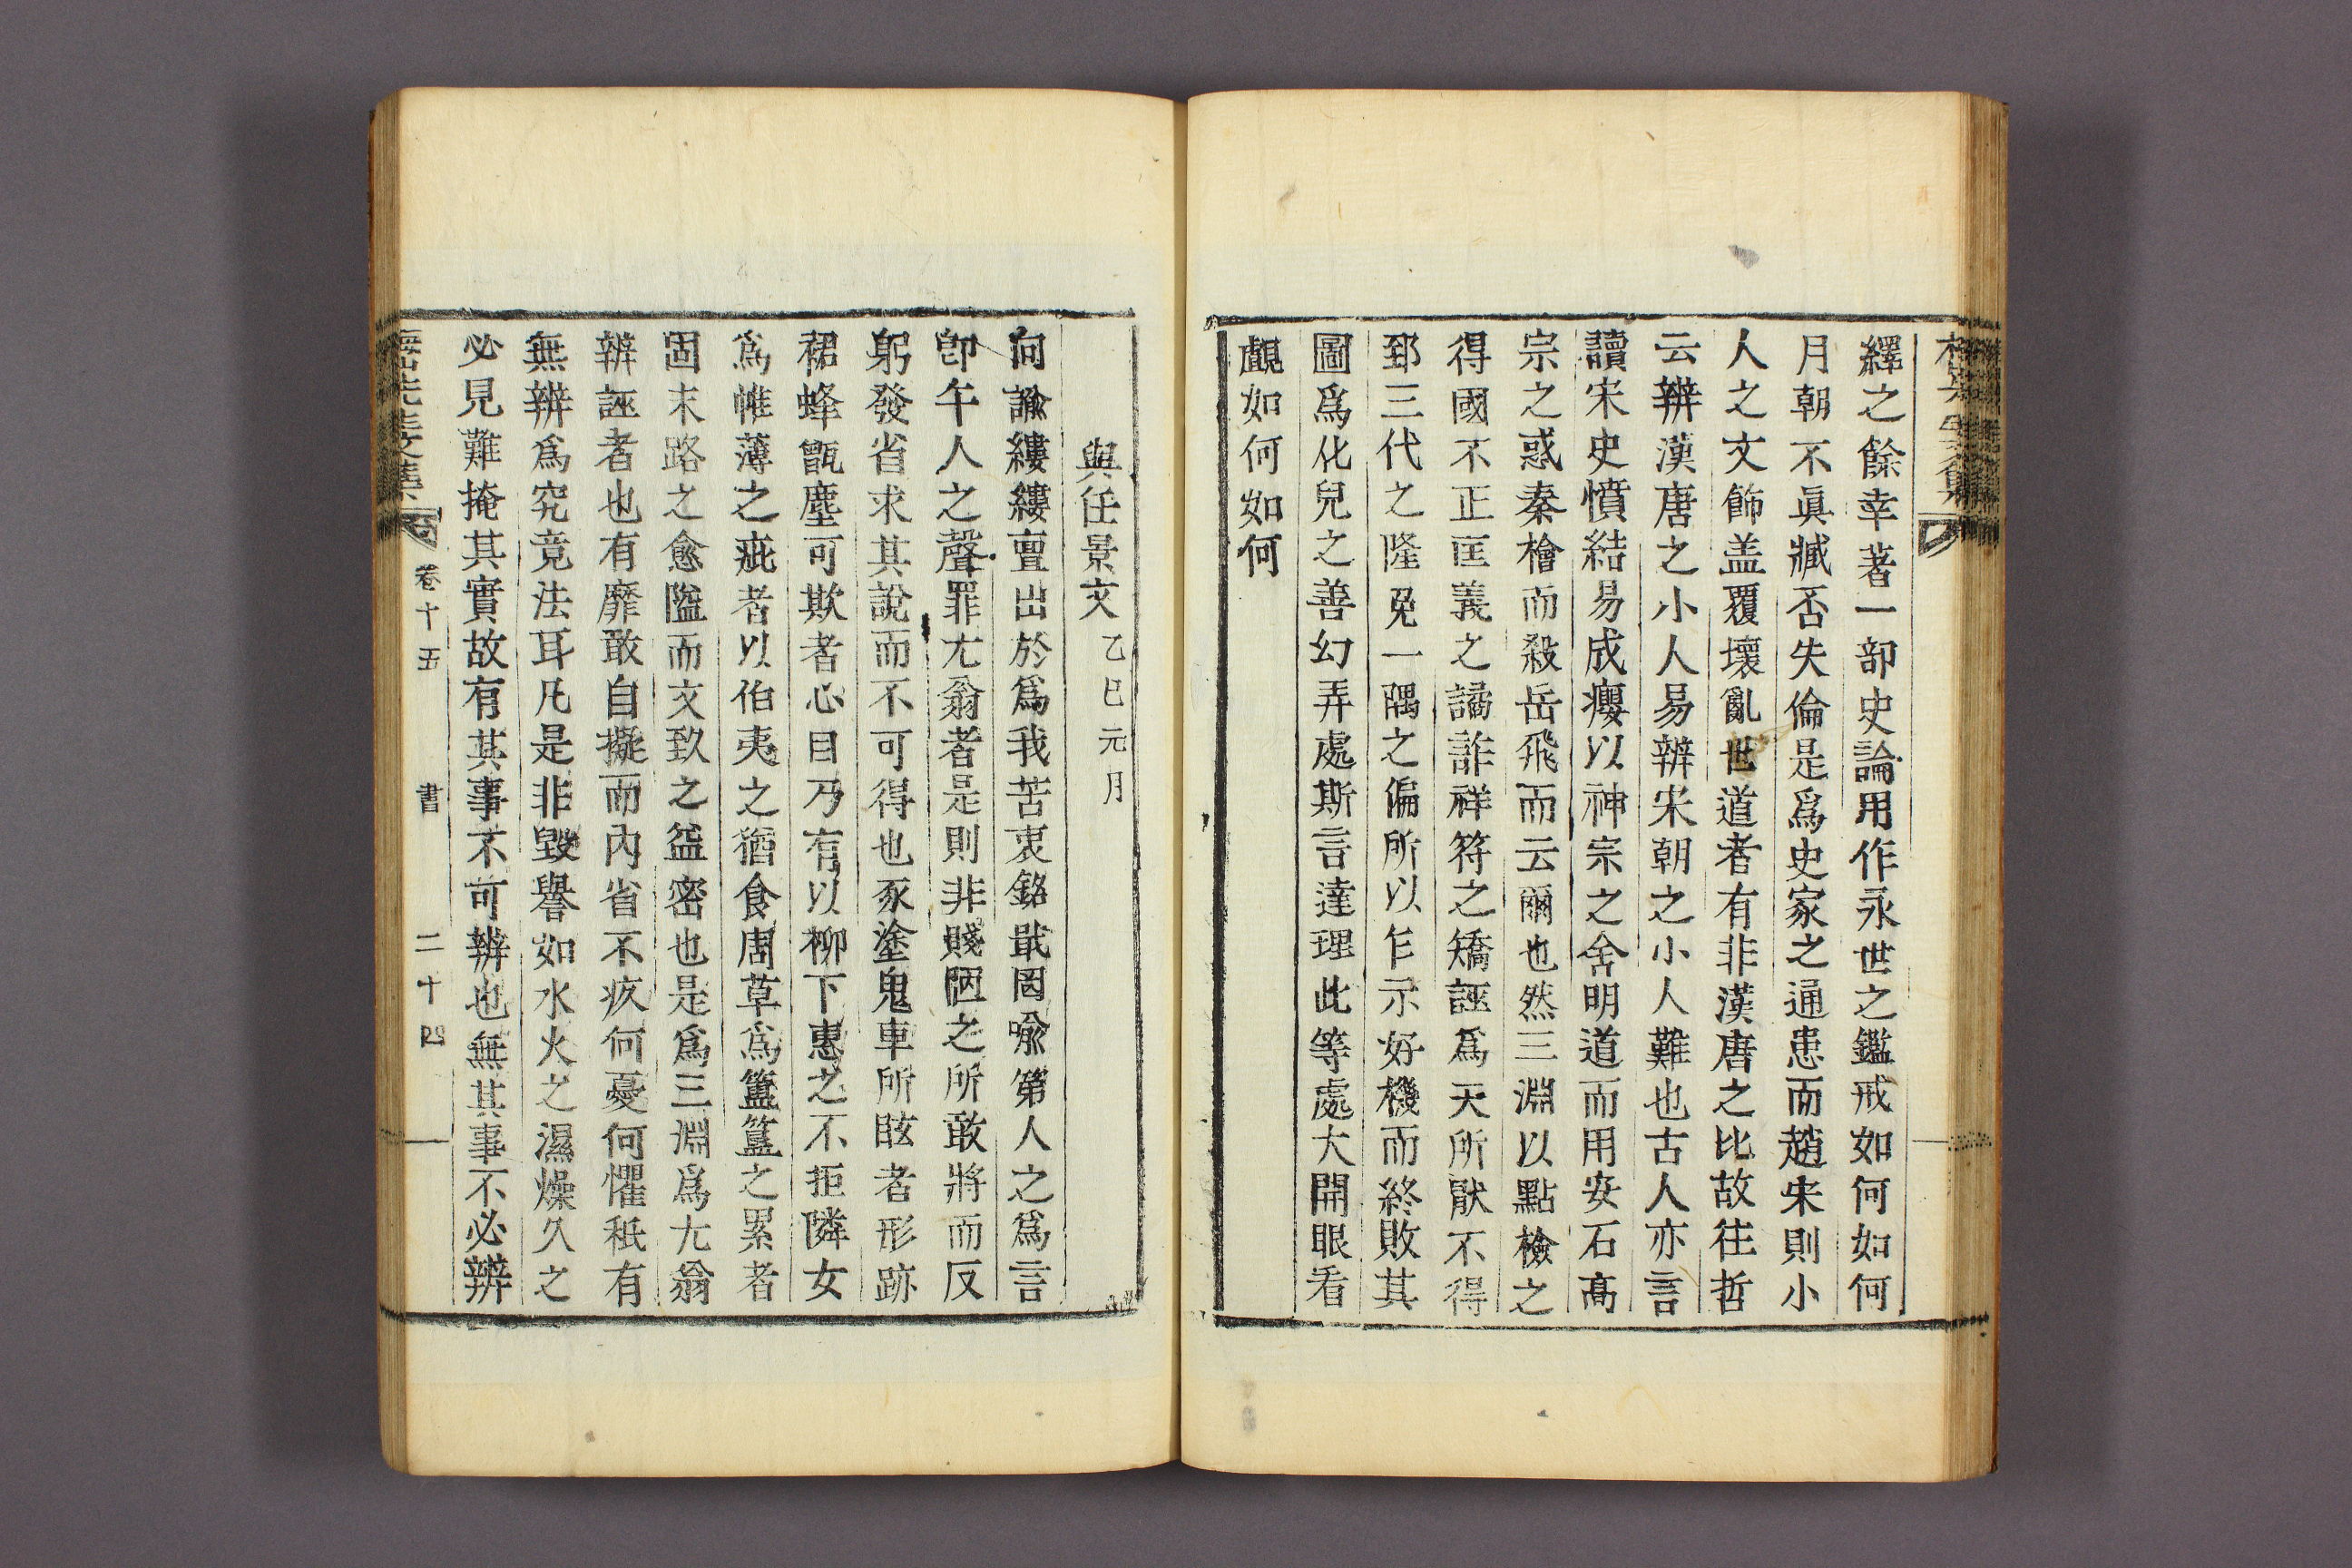 繹之餘幸著一部史論用作永世之鑑戒如何如何
月朝不眞臧否失倫是爲史家之通患而趙宋則小
人之文飾盖覆壞亂世道者有非漢唐之比故往哲
云辨漢唐之小人易辨宋朝之小人難也古人亦言
讀宋史憤結易成癭以神宗之舍明道而用安石高
宗之惑秦檜而殺岳飛而云爾也然三淵以點檢之
得國不正匡義之譎詐祥符之矯誣爲天所厭不得
郅三代之隆免一隅之偏所以乍示好機而終敗其
圖爲化兒之善幻弄處斯言達理此等處大開眼看
覰如何如何
與任景文 乙巳元月
向諭縷縷亶出於爲我苦衷銘戢罔喩第人之爲言
卽午人之聲罪尤翁者是則非賤陋之所敢將而反
躬發省求其說而不可得也豕塗鬼車所眩者形跡
裙蜂甑塵可欺者心目乃有以柳下惠之不拒隣女
爲帷薄之疵者以伯夷之猶食周草爲簠簋之累者
固末路之愈隘而文致之益密也是爲三淵爲尤翁
辨誣者也有靡敢自擬而內省不疚何憂何懼秖有
無辨爲究竟法耳凡是非毀譽如水火之濕燥久之
必見難掩其實故有其事不可辨也無其事不必辨
先生文集 卷十五 書 二十四